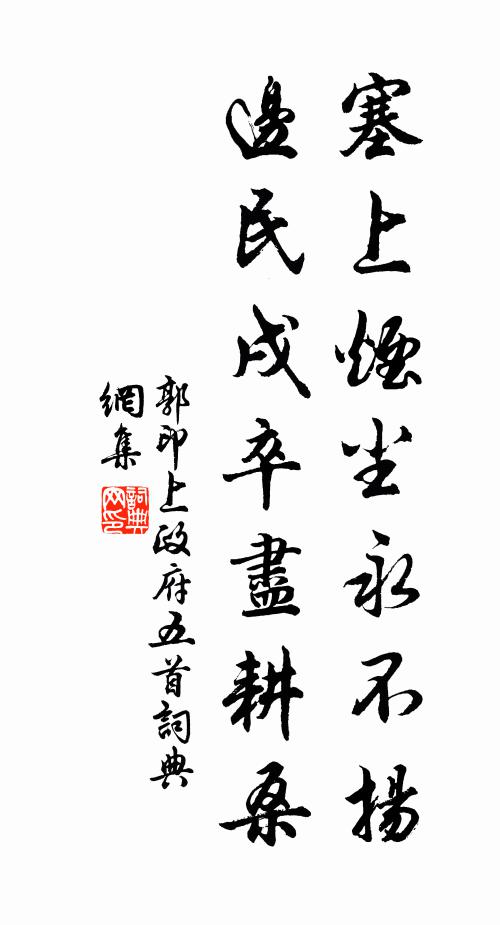 塞上煙尘永不揚
邊民戍卒盡耕桑
郭印上政府五首詞典
網集
詞典网印